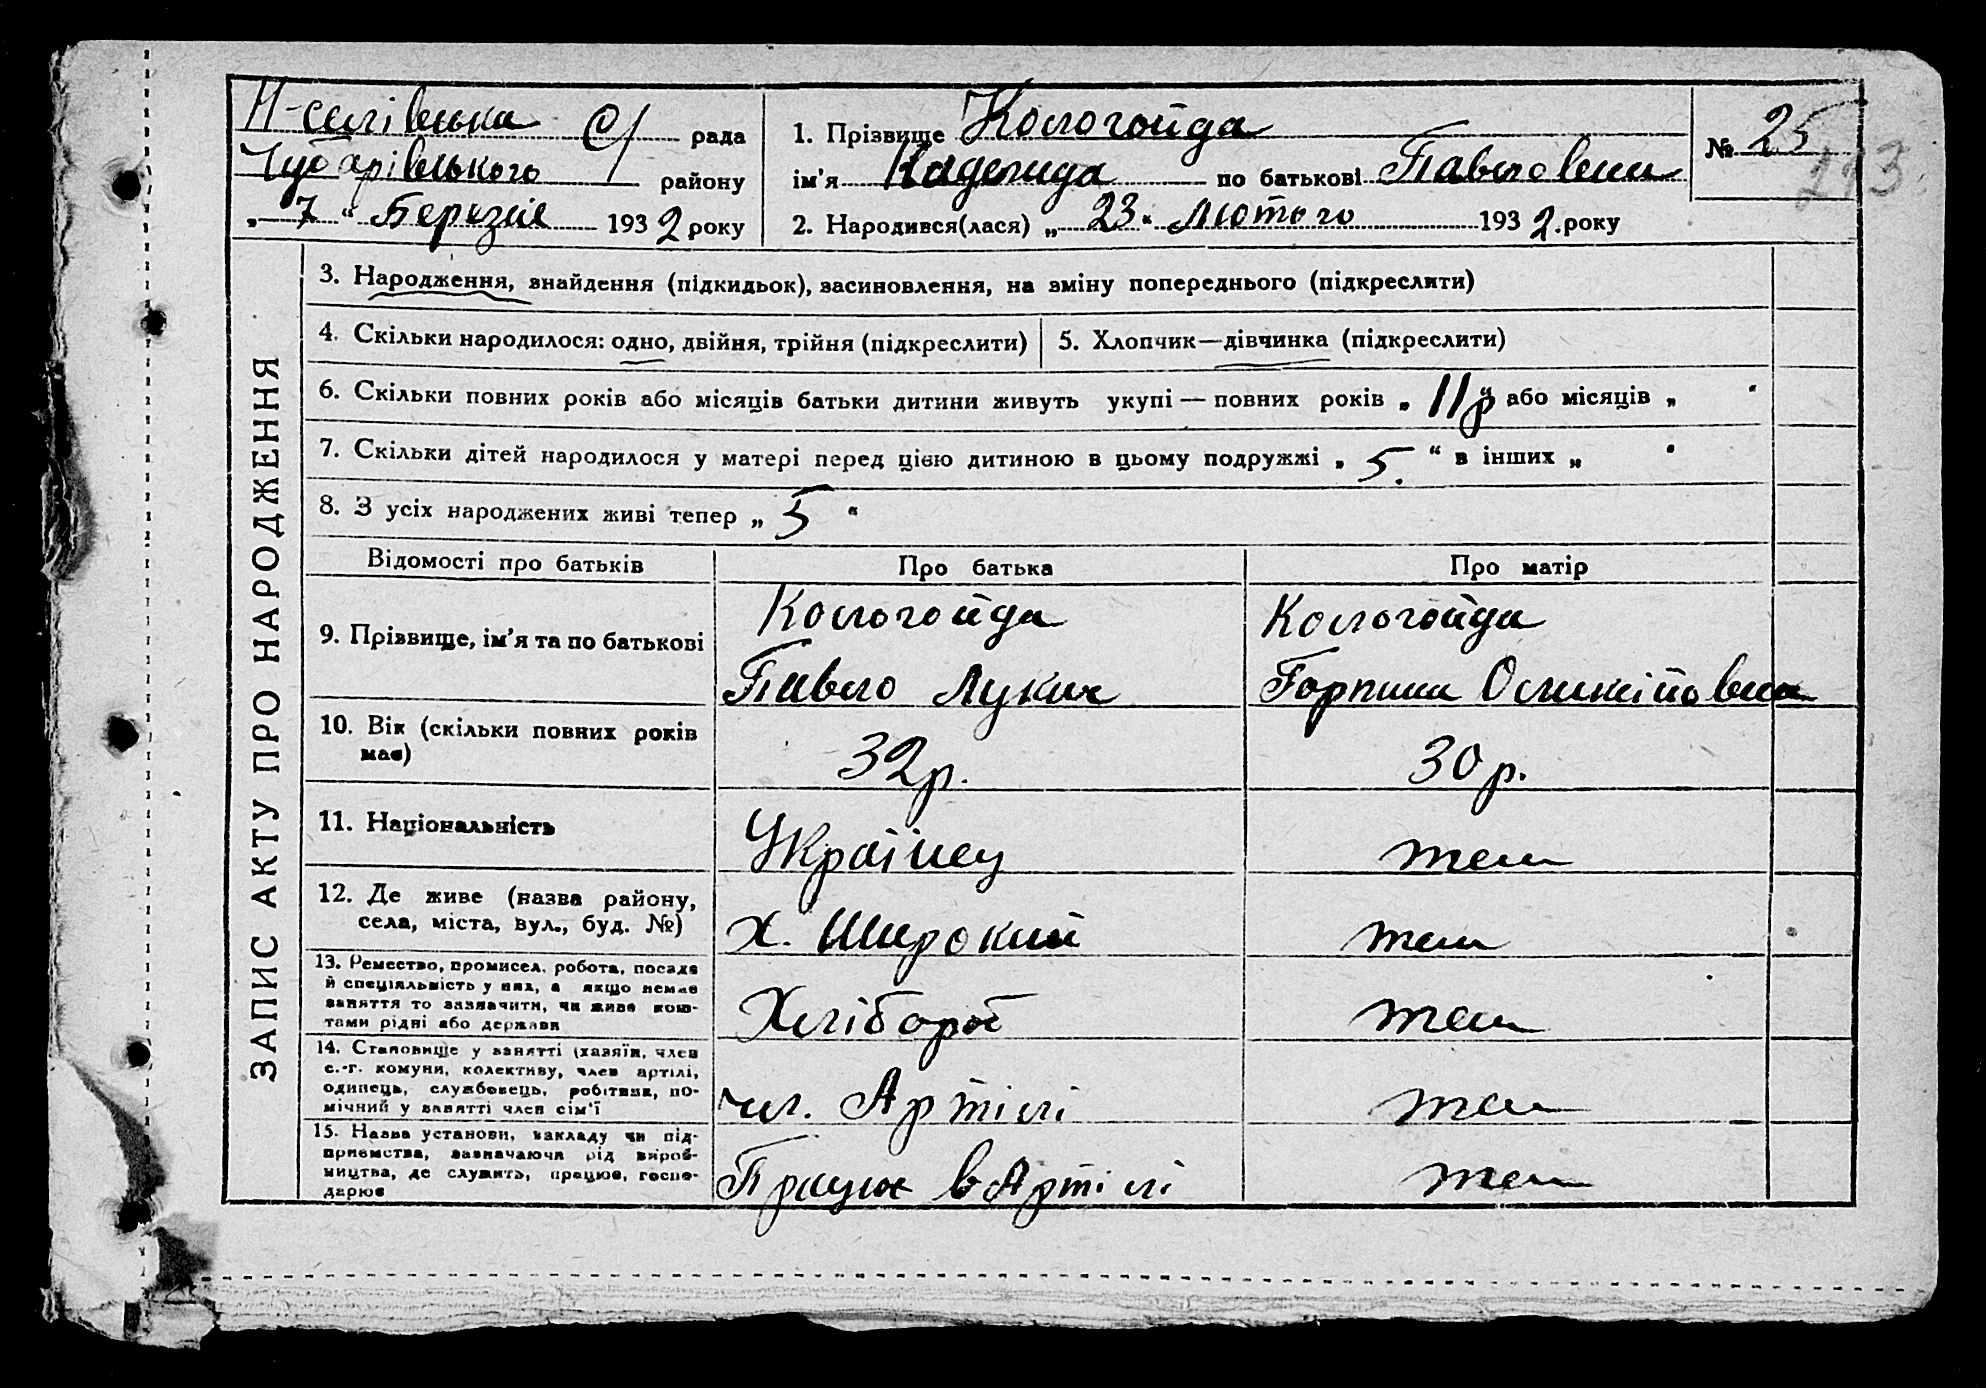 Н-селівська С/ рада
Чубарівського району
„ 7 “ Березня 1932 року
1. Прізвище Кологойда
ім'я Надежда по батькові Павловна
2. Народився(лася) „ 23 “ Лютого 1932. року
№ 25
213
ЗАПИС АКТУ ПРО НАРОДЖЕННЯ
3. Народження, знайдення (підкидьок), засиновлення, на зміну попереднього (підкреслити)
4. Скільки народилося: одно, двійня, трійня (підкреслити)
5. Хлопчик—дівчинка (підкреслити)
6. Скільки повних років або місяців батьки дитини живуть укупі — повних років „ 11р “ або місяців „ “
7. Скільки дітей народилося у матері перед цією дитиною в цьому подружжі „ 5. “ в інших „ “
8. З усіх народжених живі тепер „ 5 “
Відомості про батьків
Про батька
Про матір
9. Прізвище, ім'я та по батькові
Кологойда
Павло Лукич
Кологойда
Горпина
10. Вік (скільки повних років
має)
32р.
30р.
11. Національність
Українец
теж
12. Де живе (назва району,
села, міста, вул., буд. №)
х. Широкий
теж
13. Ремество, промисел, робота, посада
й спеціяльність у них, а якщо немає
заняття то зазначити, чи живе кош-
тами рідні або держави
Хлібороб
теж
14. Становище у занятті (хазяїн, член
с.-г. комуни, колективу, член артілі,
одинець, службовець, робітник, по-
мічний у занятті член сім'ї
чл. Артілі
теж
15. Назва установи, закладу чи під-
приємства, зазначаючи рід вироб-
ництва, де служить, працює, госпо-
дарює
Працює в Артілі
теж